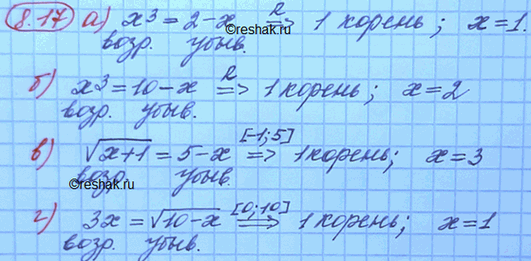 8.17 а) x³ = 2-x ⇒ᴿ 1 корень; x=1.
возр. убыв.
©reshak.ru
б) x³ = 10-x ⇒ᴿ 1 корень; x=2
возр. убыв.
в) √(x+1) = 5-x [-1;5] ⇒ 1 корень; x=3
возр. убыв.
©reshak.ru
г) 3x = √(10-x) [0;10] ⇒ 1 корень; x=1
возр. убыв.